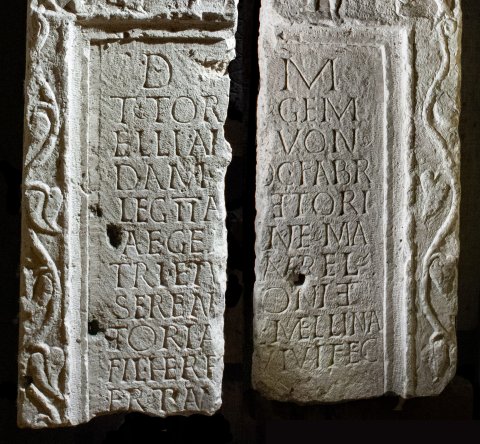 D
T TOR
ELLIAI
DAM
LEG II A
AEGE
TRI ET V
SEREN
TORIA
FILI ERE
ERTAV
M
GEM
VON
CFABR
ETORI
NE MA
RE BEL
ONIE
VELLINA
VIVI FEC